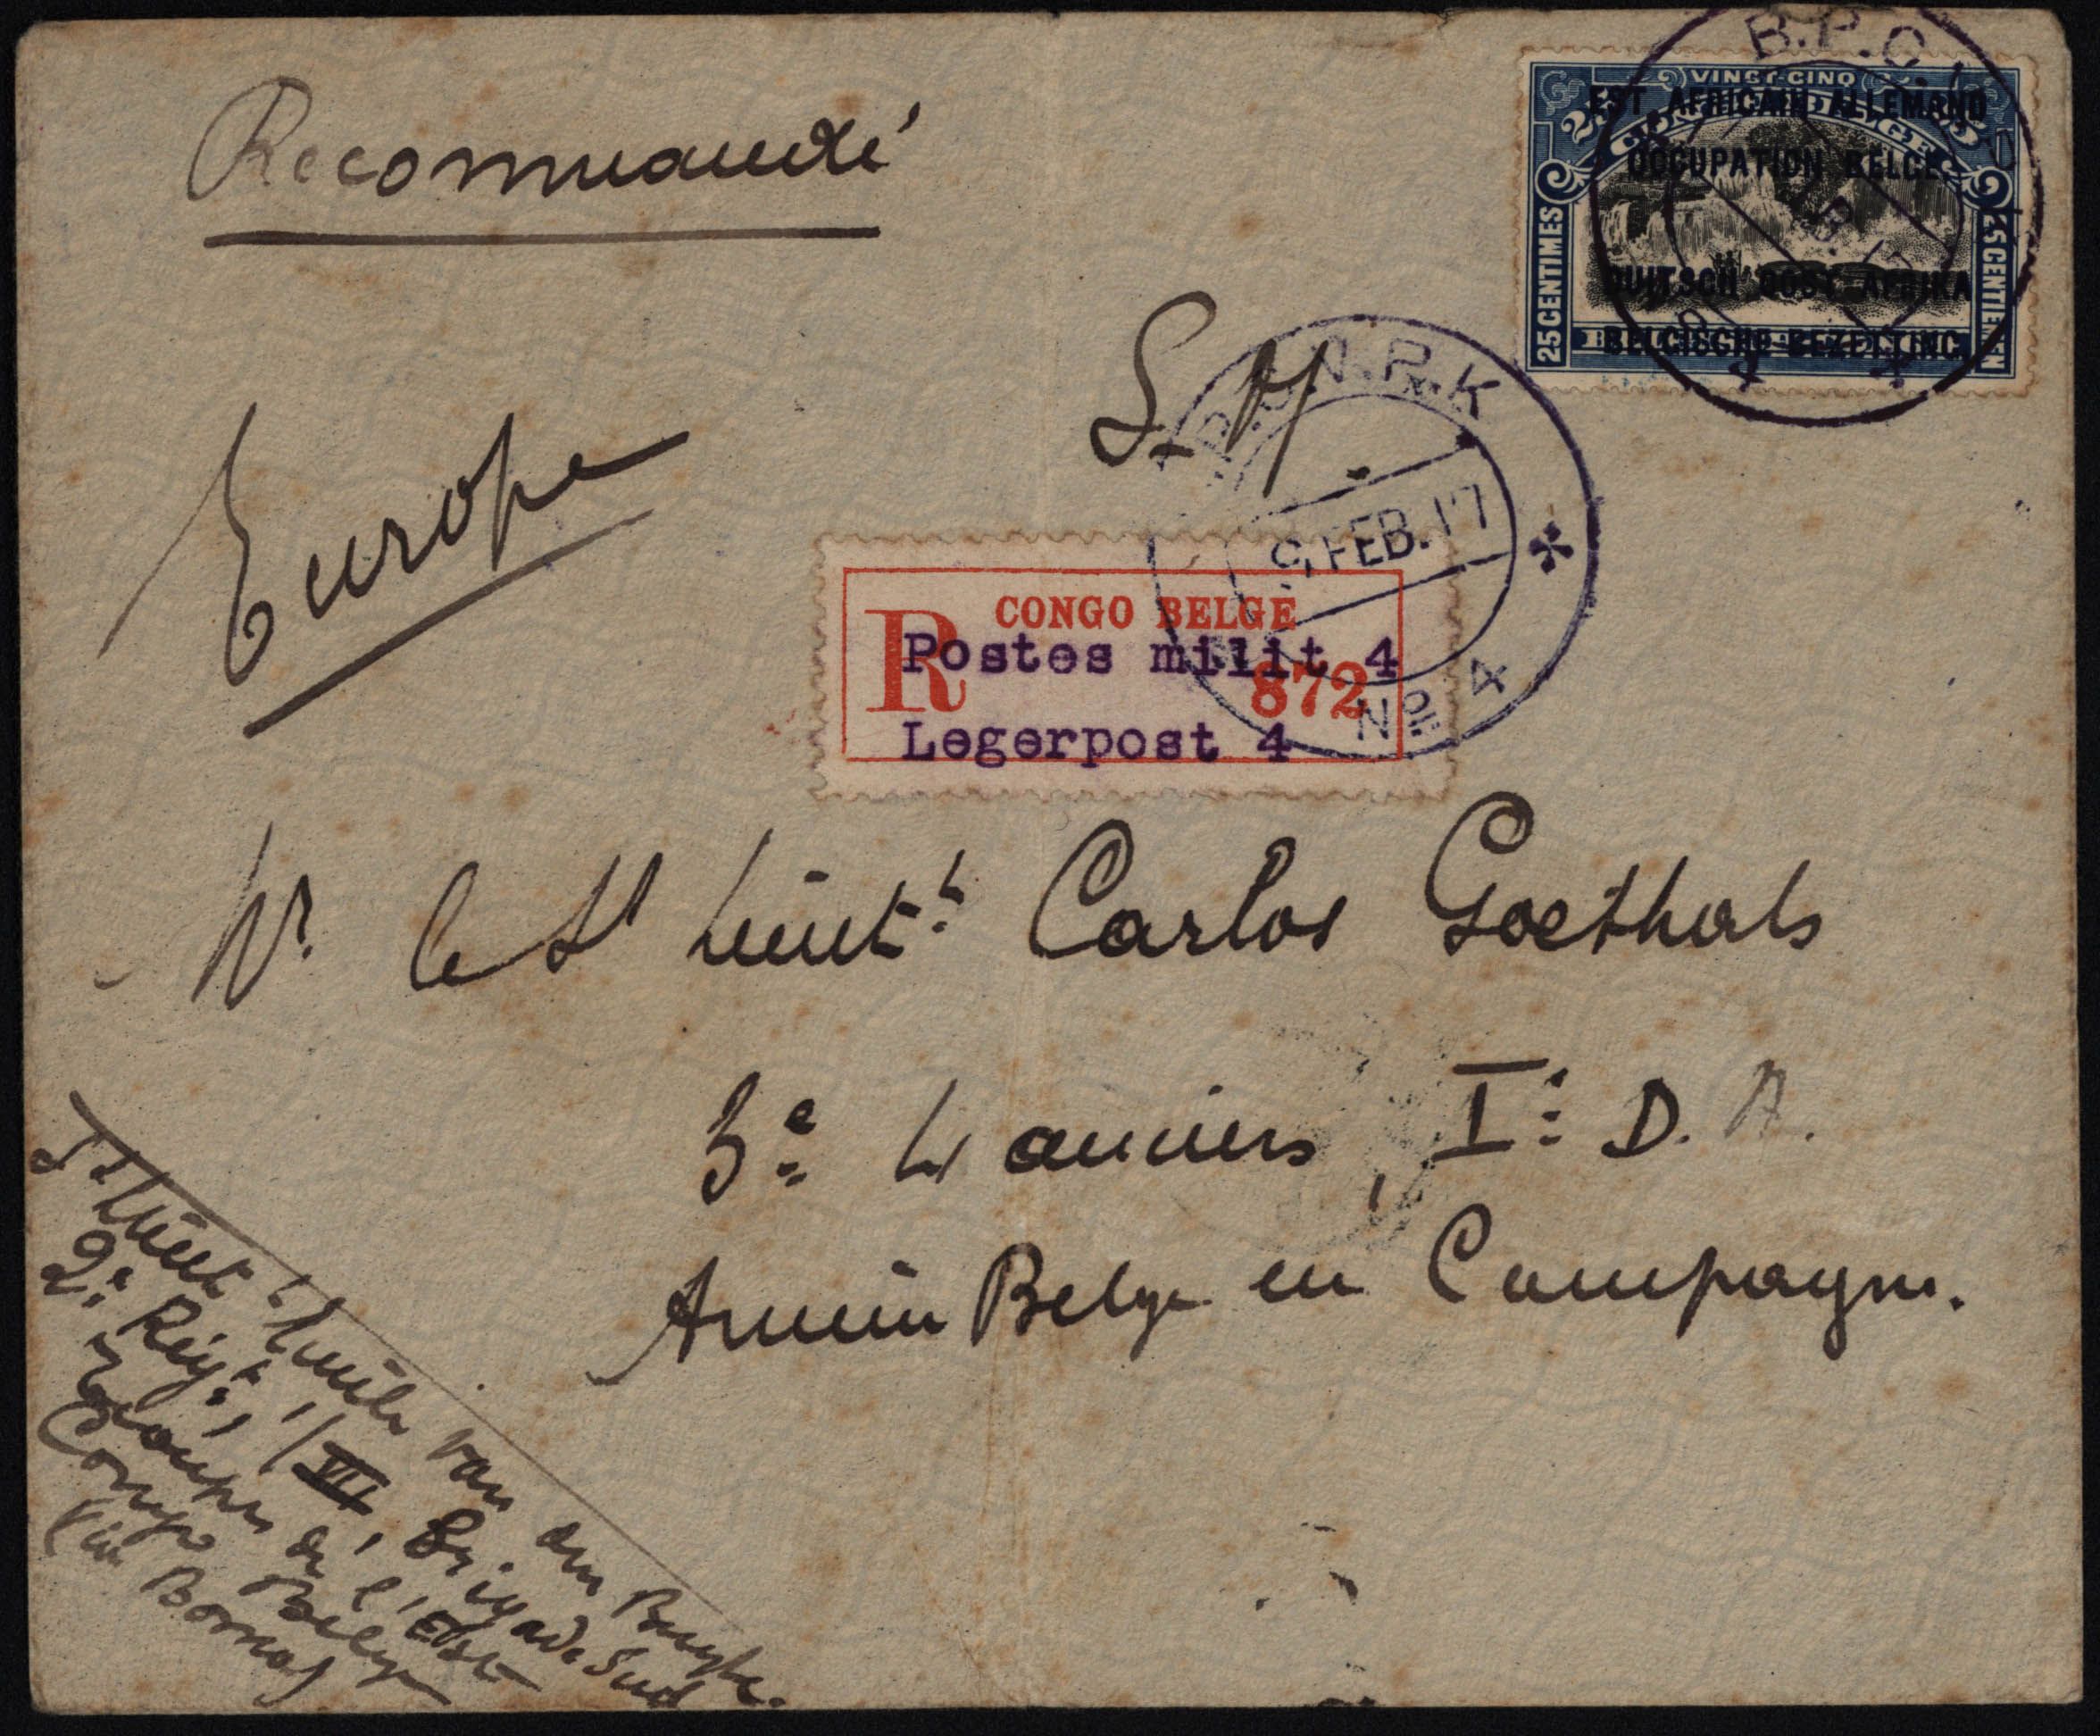 Recommandé
Europe
S. M
VINGT-CINQ
25
CONGO BELGE
25 CENTIMES
25 CENTIEMEN
EST AFRICAIN ALLEMAND
OCCUPATION BELGE.
DUITSCH OOST AFRIKA
BELGISCHE BEZETTING.
B.P.C.
FEB. 17
No 4
R
CONGO BELGE
Postes milit 4
872
Legerpost 4
Mr. le St Lieutt. Carlos Goethals
3e Lanciers, Ie D. A.
Armée Belge en Campagne.
St Lieut Emile van den Bussche.
2e Régt, 1/VII, Brigade Sud
Groupe de l'Est
Congo Belge
(via Boma)